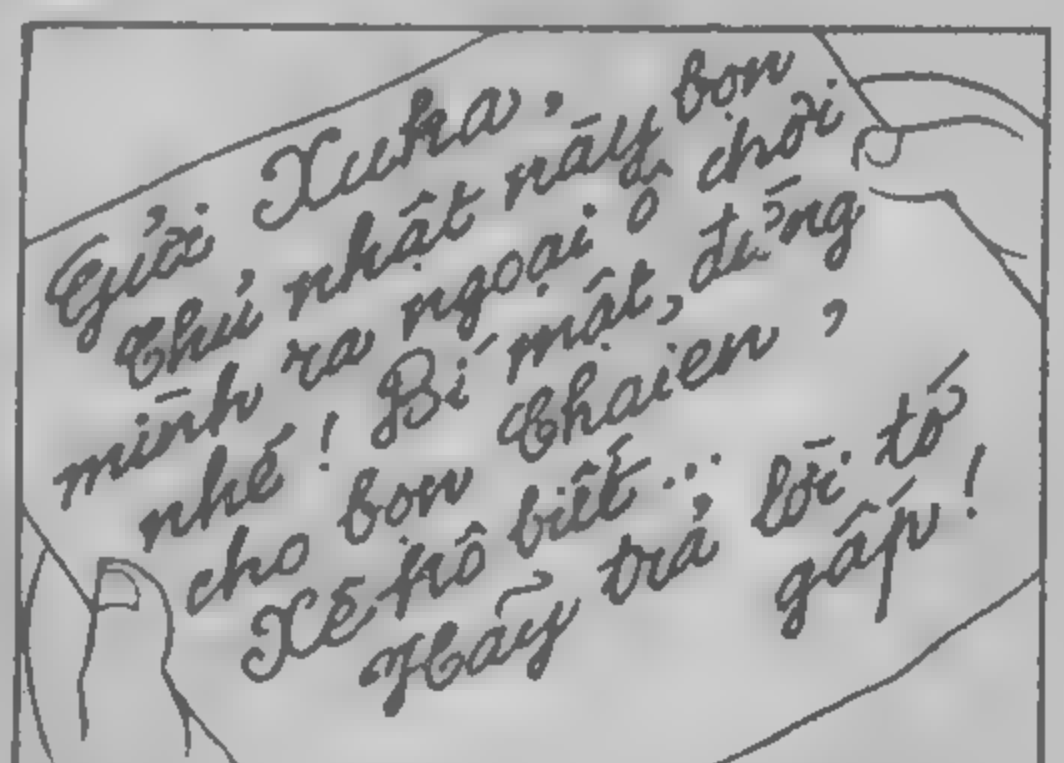 Gửi Xuka,
Thứ nhật nāy bọn
mình ra ngoại ô chơi
nhé! Bí mật, đừng
cho bọn Chaien,
Xêkô biết...
Hãy trả lời tớ
gấp!